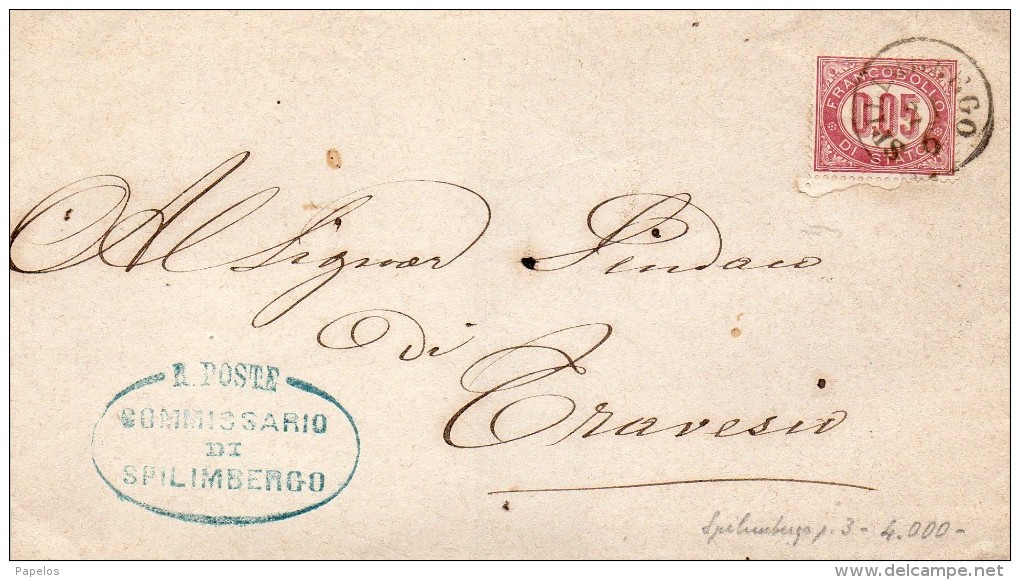 FRANCOBOLLO
0.05
DI STATO
Al Signor Sindaco
di
Travesio
R. POSTE
COMMISSARIO
DI
SPILIMBERGO
Spilimbergo p. 3 - 4.000 -
Papelos
delcampe.net